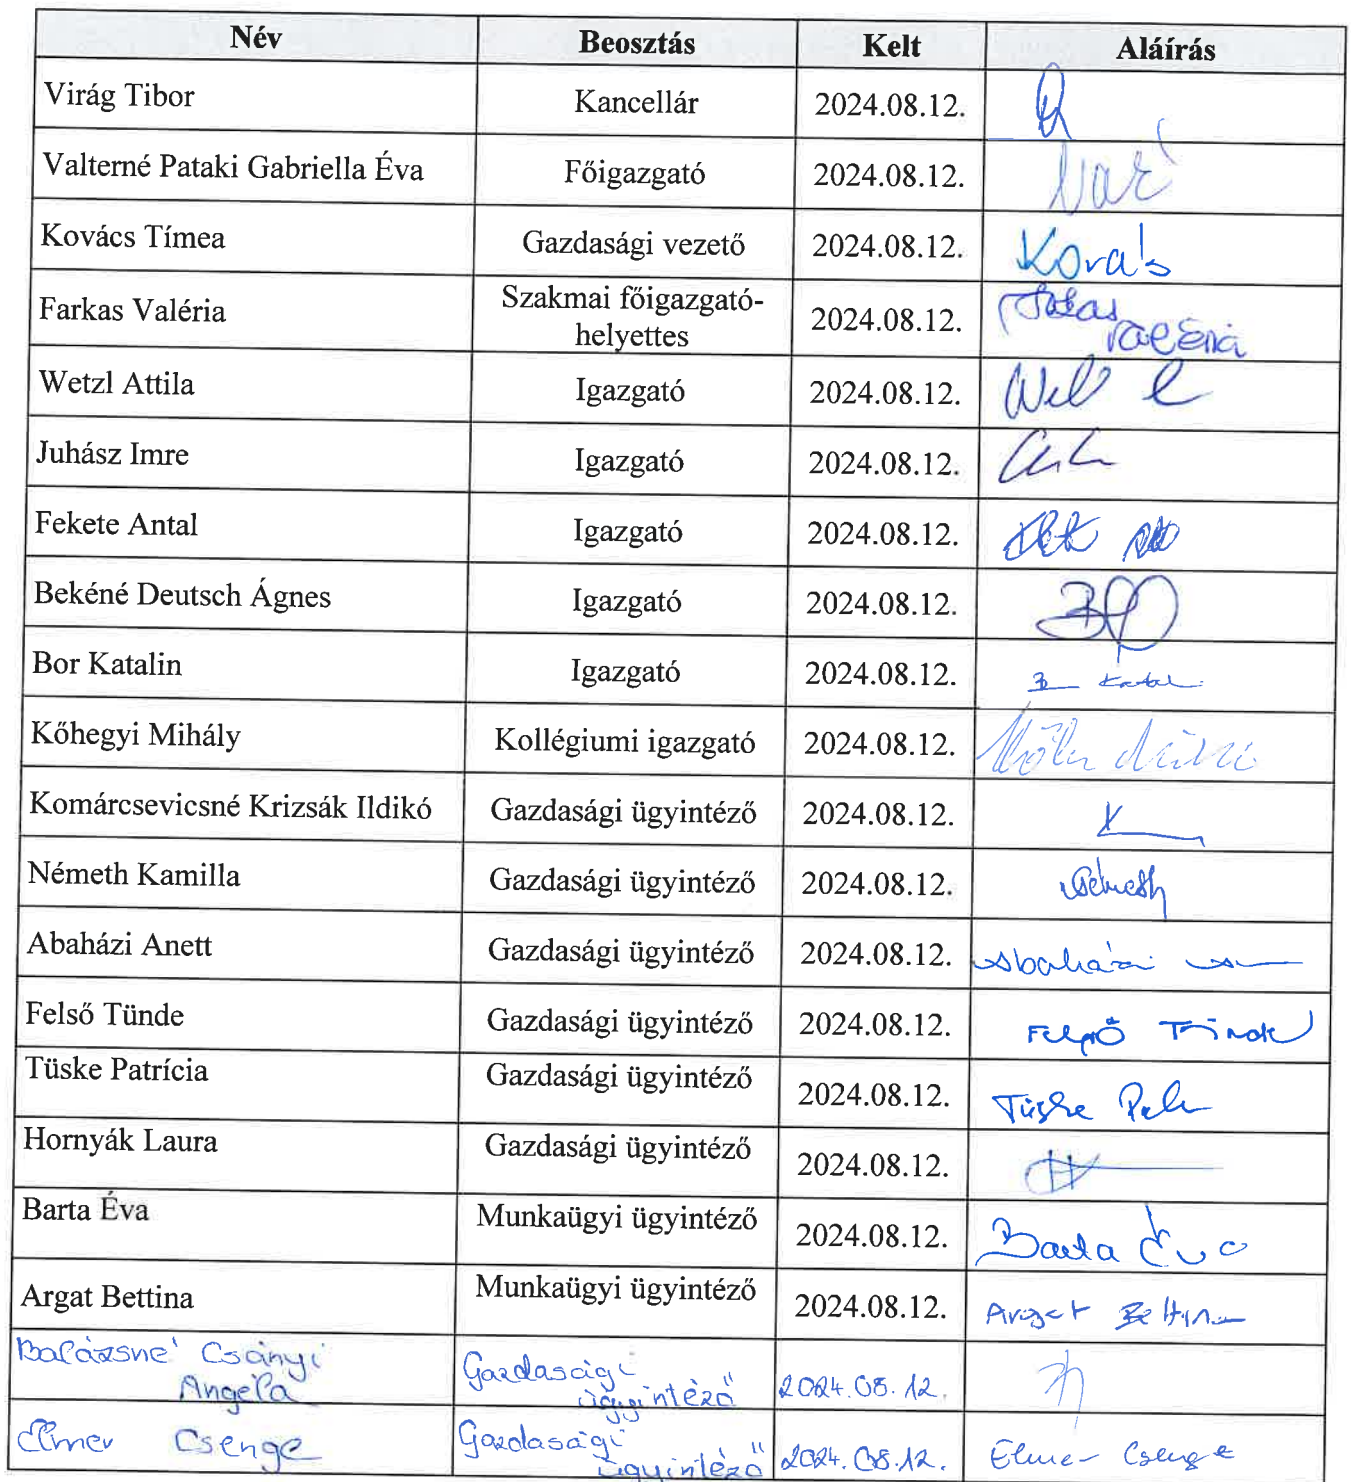 Név Beosztás Kelt Aláírás
Virág Tibor Kancellár 2024.08.12.
Valterné Pataki Gabriella Éva Főigazgató 2024.08.12.
Kovács Tímea Gazdasági vezető 2024.08.12. Kovács
Farkas Valéria Szakmai főigazgató-
helyettes 2024.08.12. Farkas
Valéria
Wetzl Attila Igazgató 2024.08.12.
Juhász Imre Igazgató 2024.08.12.
Fekete Antal Igazgató 2024.08.12.
Bekéné Deutsch Ágnes Igazgató 2024.08.12.
Bor Katalin Igazgató 2024.08.12.
Kőhegyi Mihály Kollégiumi igazgató 2024.08.12.
Komárcsevicsné Krizsák Ildikó Gazdasági ügyintéző 2024.08.12.
Németh Kamilla Gazdasági ügyintéző 2024.08.12. Németh
Abaházi Anett Gazdasági ügyintéző 2024.08.12. Abaházi
Felső Tünde Gazdasági ügyintéző 2024.08.12. Felső Tünde
Tüske Patrícia Gazdasági ügyintéző 2024.08.12. Tüske
Hornyák Laura Gazdasági ügyintéző 2024.08.12.
Barta Éva Munkaügyi ügyintéző 2024.08.12. Barta Éva
Argat Bettina Munkaügyi ügyintéző 2024.08.12. Argat Bettina
Balázsné Csányi
Angéla Gazdasági
ügyintéző 2024.08.12.
Elmer Csenge Gazdasági
ügyintéző 2024.08.12. Elmer Csenge